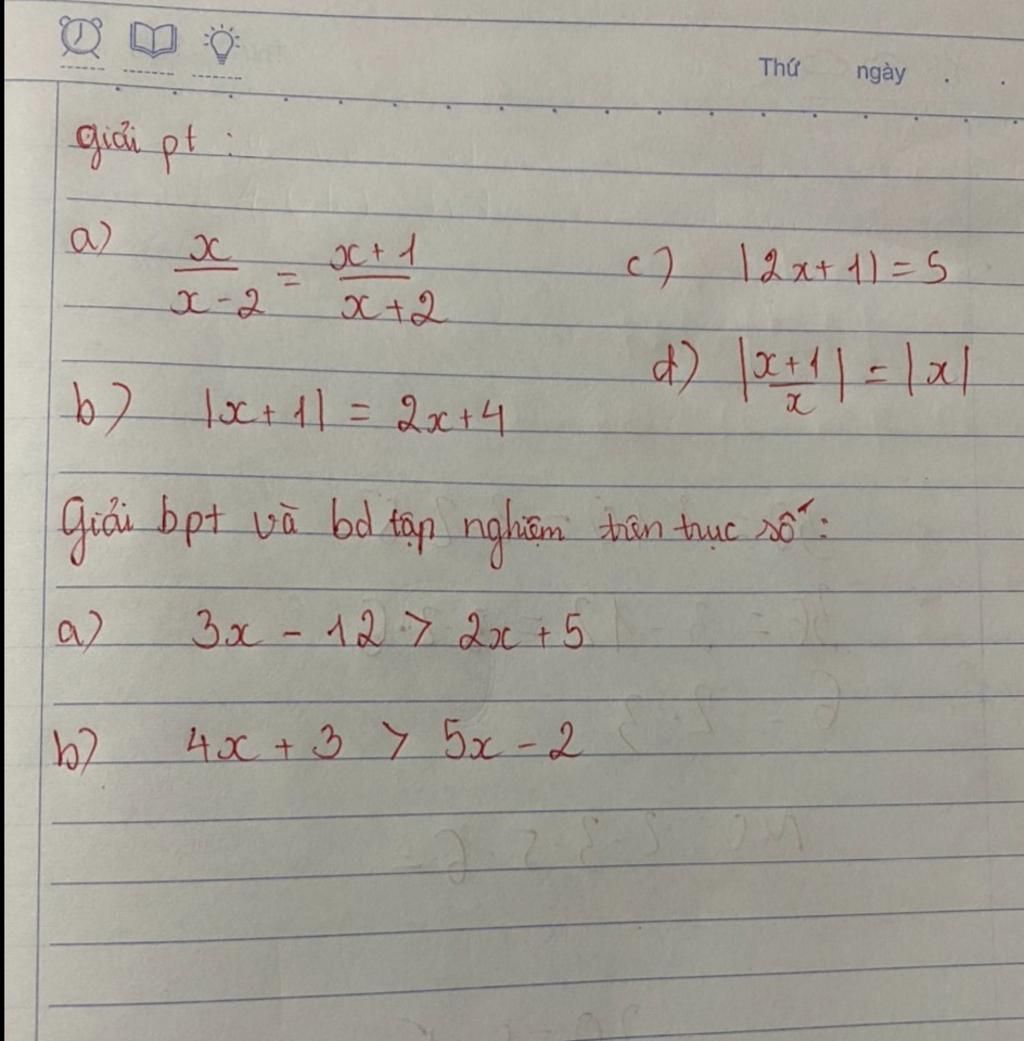 Thứ ngày
giải pt :
a) x/(x-2) = (x+1)/(x+2)
c) |2x+1| = 5
d) |(x+1)/x| = |x|
b) |x+1| = 2x+4
Giải bpt và bd tập nghiệm trên trục số :
a) 3x - 12 > 2x + 5
b) 4x + 3 > 5x - 2